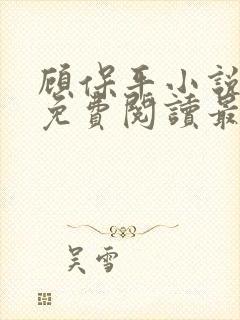 顾保平小說
免費閱讀最
吴雪